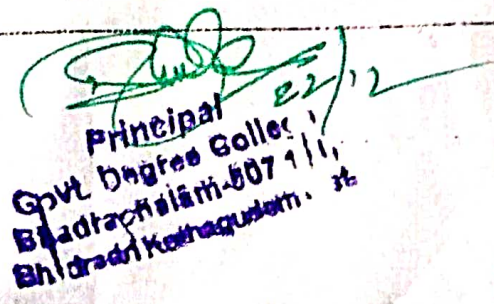 22/12
Principal
Govt. Degree Colle
Bhadrachalam-507 111,
Bhadradri Kothagudem.